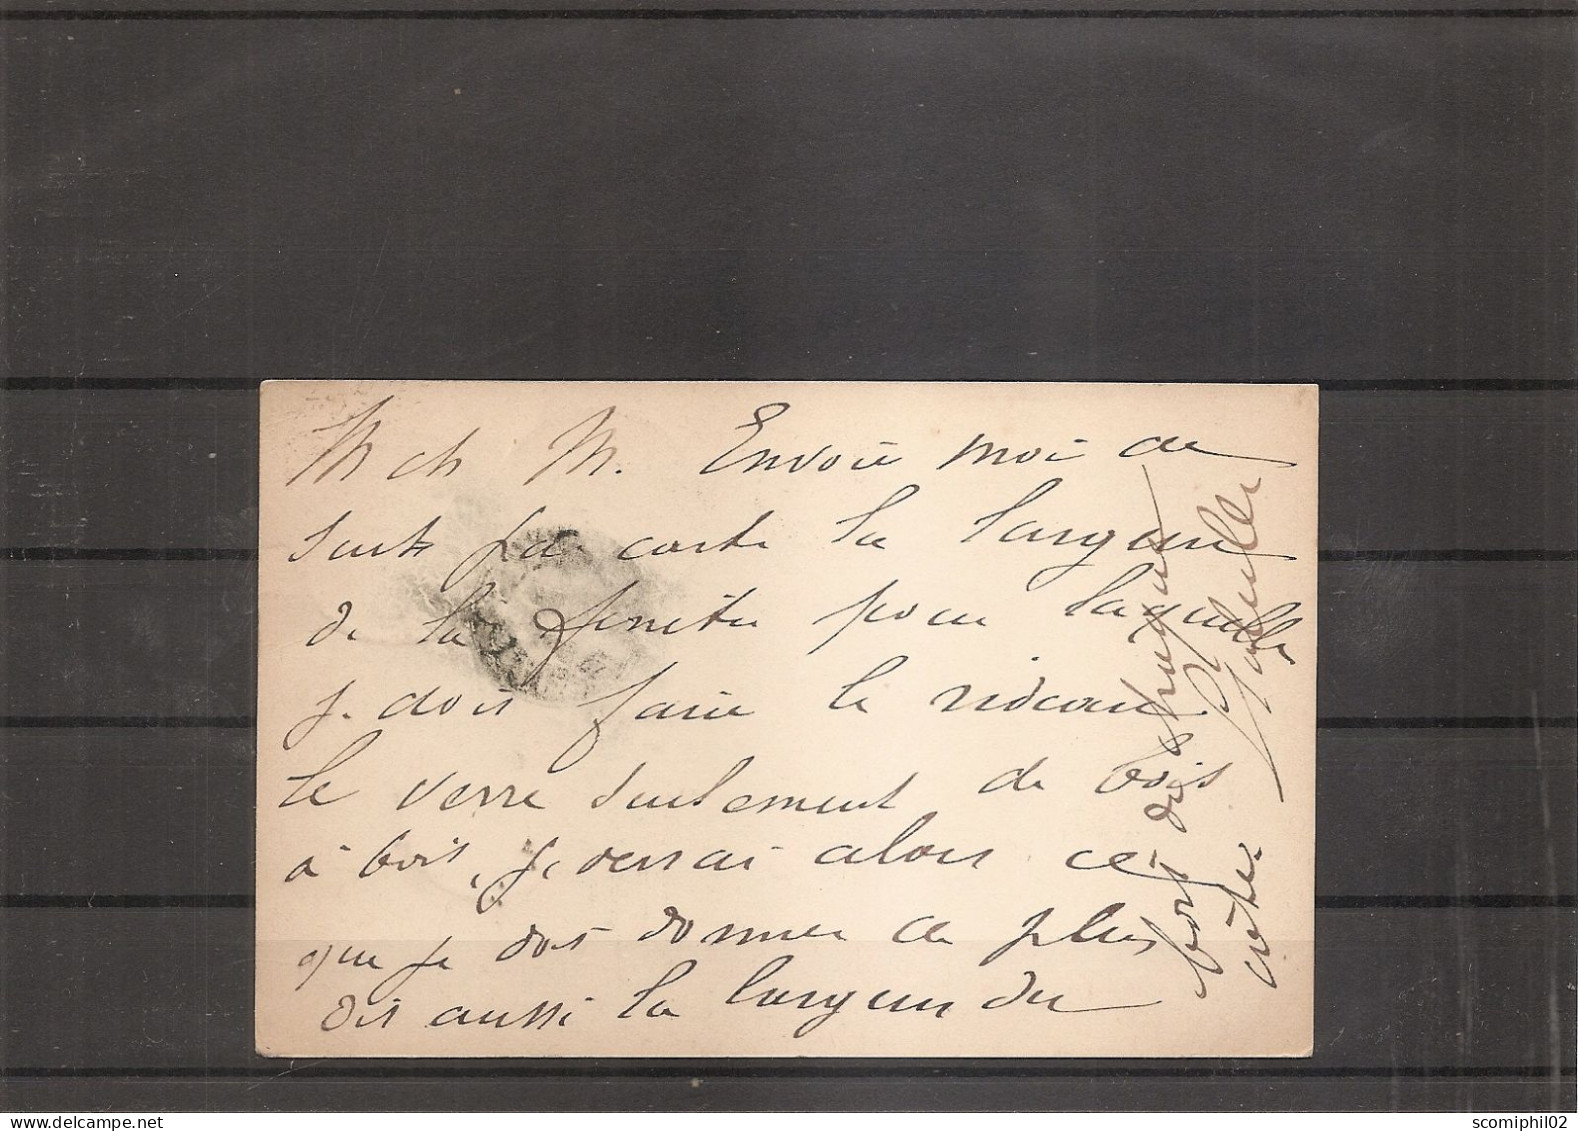 M ch M. Envoie moi de
suite par carte la largeur
de la fenêtre pour laquelle
je dois faire le rideau
le verre seulement de bois
à bois, je verrai alors ce
que je dois donner de plus
dis aussi la largeur du
bois de chaque
côté
delcampe.net
scomiphil02